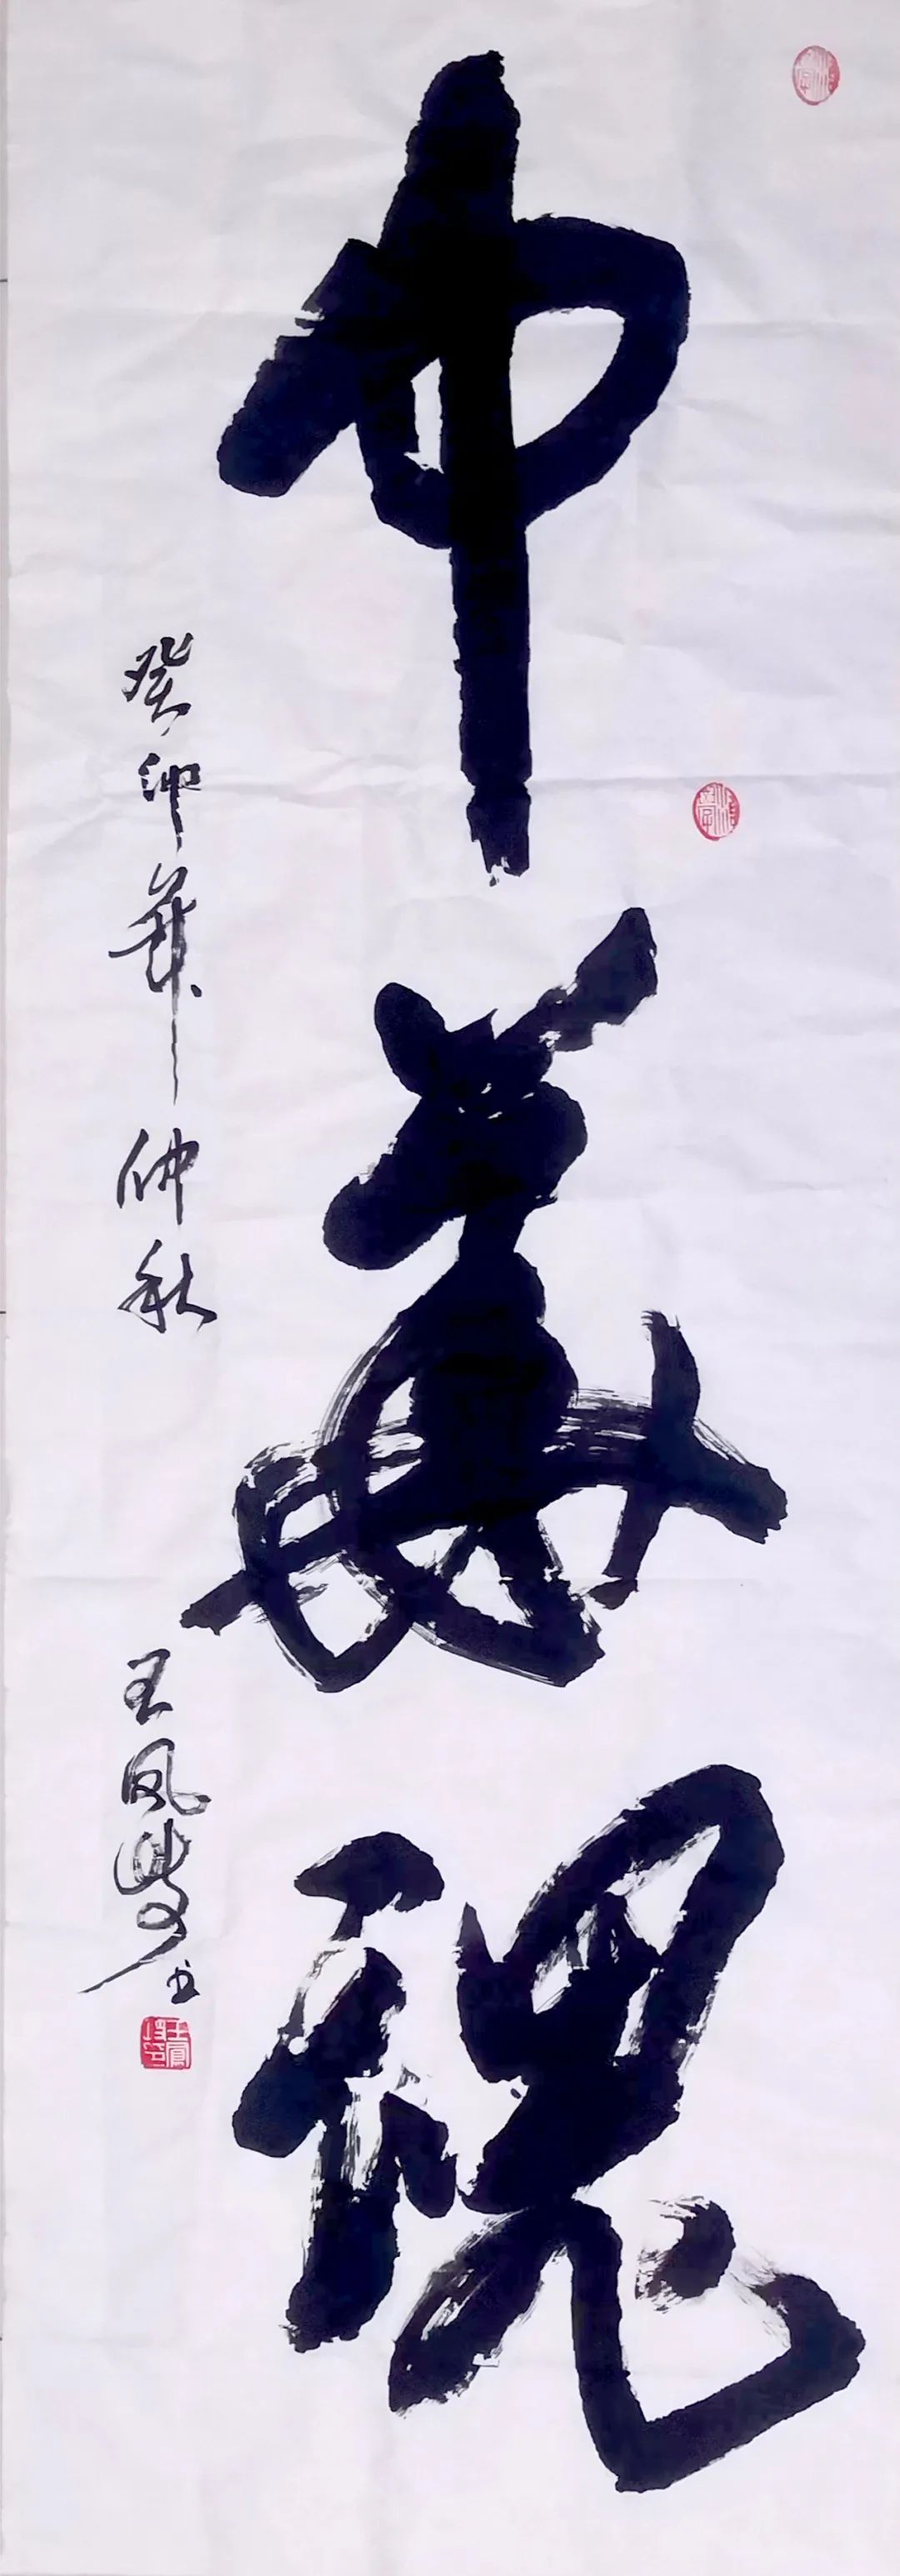 中華魂
癸卯 仲秋
王凤 书